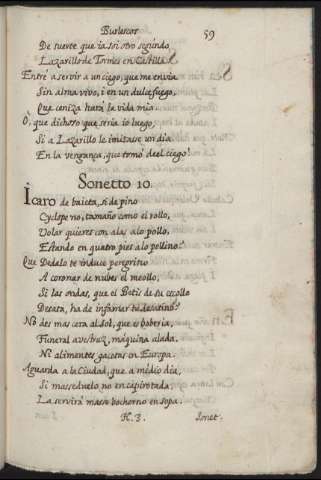 Burlescos 59
De suerte que ia soi otro segundo
Lazarillo de Tormes en Castilla.
Entre a servir a un ciego, que me envia
Sin alma vivo, i en un dulce fuego,
Que ceniza hará la vida mia.
O, que dichoso que seria io luego,
Si a Lazarillo le imitasse un dia
En la vengança, que tomó de el ciego!
Sonetto 10
Icaro de baieta, si de pino
Cyclope no, tamaño como el rollo,
Volar quieres con alas a lo pollo,
Estando en quatro pies a lo pollino?
Que Dedalo te induce peregrino
A coronar de nubes el meollo,
Si las ondas, que el Betis de su escollo
Desata, ha de infamar tu desatino?
No des mas cera al Sol, que es boberia,
Funeral avestruz, machina alada,
Ni alimentes gacetas en Europa.
Aguarda a la Ciudad, que a medio dia,
Si masse duelo no en capirotada,
La servirá masse bochorno en sopa.
H. 3. Sonet.